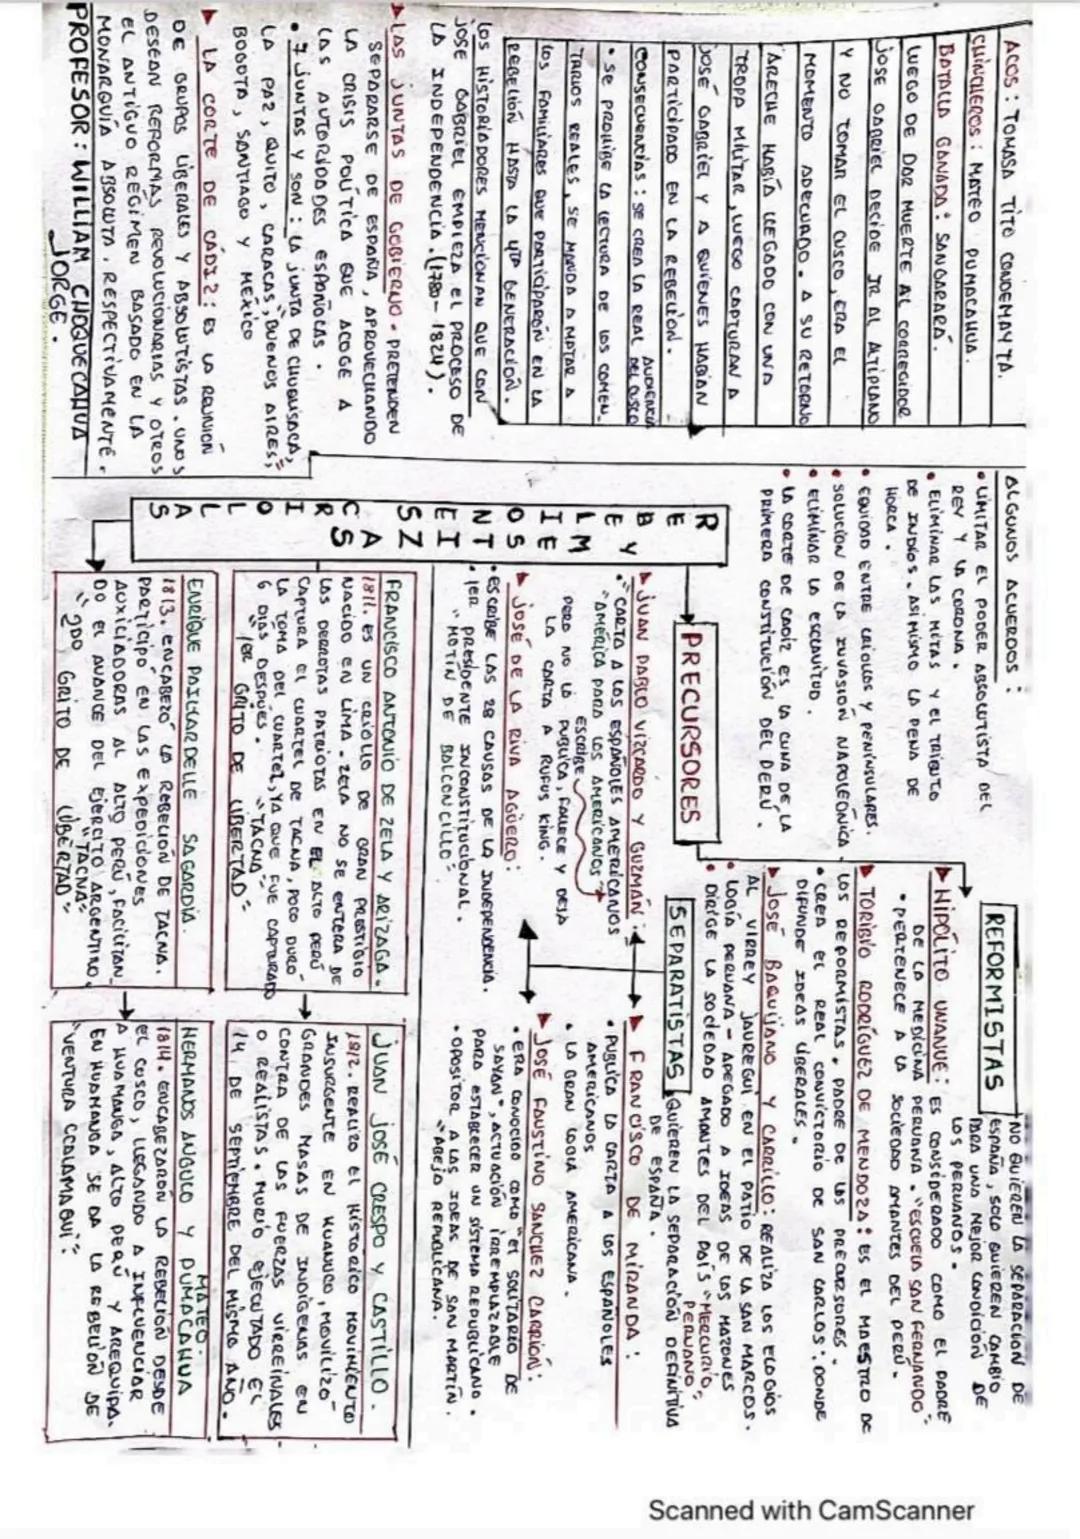 ACOS: TOMASA TITO CONDEMAYTA.
CHINCHEROS: MATEO PUMACAHUA.
BATALLA GANADA: SANGARARÁ.
LUEGO DE DAR MUERTE AL CORREGIDOR
JOSE GABRIEL DECIDE IR AL ALTIPLANO
Y NO TOMAR EL CUSCO, ERA EL
MOMENTO ADECUADO. A SU RETORNO
ARECHE HABÍA LLEGADO CON UNA
TROPA MILITAR, LUEGO CAPTURAN A
JOSÉ GABRIEL Y A QUIENES HABÍAN
PARTICIPADO EN LA REBELIÓN.
CONSECUENCIAS: SE CREA LA REAL AUDIENCIA DEL CUSCO
• SE PROHIBE LA LECTURA DE LOS COMEN-
TARIOS REALES, SE MANDA A MATAR A
LOS FAMILIARES QUE PARTICIPARON EN LA
REBELIÓN HASTA LA 4TA GENERACIÓN.
LOS HISTORIADORES MENCIONAN QUE CON
JOSE GABRIEL EMPIEZA EL PROCESO DE
LA INDEPENDENCIA. (1780-1824).
LAS JUNTAS DE GOBIERNO. PRETENDEN
SEPARARSE DE ESPAÑA, APROVECHANDO
LA CRISIS POLÍTICA QUE ACOGE A
LAS AUTORIDADES ESPAÑOLAS.
• 7 JUNTAS Y SON: "LA JUNTA DE CHUQUISACA,
LA PAZ, QUITO, CARACAS, BUENOS AIRES,
BOGOTÁ, SANTIAGO Y MÉXICO"
LA CORTE DE CÁDIZ: ES LA REUNION
DE GRUPOS LIBERALES Y ABSOLUTISTAS. UNOS
DESEAN REFORMAS REVOLUCIONARIAS Y OTROS
EL ANTIGUO RÉGIMEN BASADO EN LA
MONARQUÍA ABSOLUTA. RESPECTIVAMENTE.
PROFESOR: WILLIAM CHOQUECAHUA
JORGE.
ALGUNOS ACUERDOS:
• LIMITAR EL PODER ABSOLUTISTA DEL
REY Y LA CORONA.
• ELIMINAR LAS MITAS Y EL TRIBUTO
DE INDIOS. ASI MISMO LA PENA DE
HORCA.
• EQUIDAD ENTRE CRIOLLOS Y PENÍNSULARES.
• SOLUCIÓN DE LA INVASIÓN NAPOLEÓNICA.
• ELIMINAR LA ESCLAVITUD.
• LA CORTE DE CADIZ ES LA CUNA DE LA
PRIMERA CONSTITUCIÓN DEL PERÚ.
REBELIONES
Y MOVIMIENTOS
CRIOLLAS
PRECURSORES
JUAN PABLO VIZCARDO Y GUZMÁN:
• "CARTA A LOS ESPAÑOLES AMERICANOS
"AMÉRICA PARA LOS AMERICANOS"
ESCRIBE
PERO NO LA PUBLICA, FALLECE Y DEJA
LA CARTA A RUFUS KING.
JOSÉ DE LA RIVA AGÜERO:
• ESCRIBE LAS 28 CAUSAS DE LA INDEPENDENCIA.
• 1ER PRESIDENTE INCONSTITUCIONAL.
"MOTÍN DE BALCONCILLO"
FRANCISCO ANTONIO DE ZELA Y ARIZAGA.
1811. ES UN CRIOLLO DE GRAN PRESTIGIO
NACIDO EN LIMA. ZELA NO SE ENTERA DE
LAS DERROTAS PATRIOTAS EN EL ALTO PERÚ
CAPTURA EL CUARTEL DE TACNA, POCO DURO
LA TOMA DEL CUARTEL, YA QUE FUE CAPTURADO
6 DÍAS DESPUES. "TACNA"
"1ER GRITO DE LIBERTAD"
ENRIQUE PAILLARDELLE SAGARDIA.
1813. ENCABEZÓ LA REBELIÓN DE TACNA.
PARTICIPÓ EN LAS EXPEDICIONES
AUXILIADORAS AL ALTO PERÚ, FACILITAN
DO EL AVANCE DEL EJERCITO ARGENTINO.
"TACNA"
"2DO GRITO DE LIBERTAD"
REFORMISTAS
NO QUIEREN LA SEPARACIÓN DE
ESPAÑA, SOLO QUIEREN CAMBIO
PARA UNA MEJOR CONDICIÓN DE
LOS PERUANOS.
HIPÓLITO UNANUE: ES CONSIDERADO COMO EL PADRE
DE LA MEDICINA PERUANA. "ESCUELA SAN FERNANDO"
• PERTENECE A LA SOCIEDAD AMANTES DEL PERÚ.
TORIBIO RODRÍGUEZ DE MENDOZA: ES EL MAESTRO DE
LOS REFORMISTAS, PADRE DE LOS PRECURSORES.
• CREA EL REAL CONVICTORIO DE SAN CARLOS: DONDE
DIFUNDE IDEAS LIBERALES.
JOSÉ BAQUIJANO Y CARRILLO: REALIZA LOS ELOGIOS
AL VIRREY JAUREGUI EN EL PATIO DE LA SAN MARCOS.
• LOGIA PERUANA - APEGADO A IDEAS DE LOS MAZONES
• DIRIGE LA SOCIEDAD AMANTES DEL PAÍS "MERCURIO PERUANO"
SEPARATISTAS
QUIEREN LA SEPARACIÓN DEFINITIVA
DE ESPAÑA.
FRANCISCO DE MIRANDA:
• PUBLICA LA CARTA A LOS ESPAÑOLES
AMERICANOS
• LA GRAN LOGIA AMERICANA.
JOSÉ FAUSTINO SANCHEZ CARRIÓN:
• ERA CONOCIDO COMO "EL SOLITARIO DE
SAYAN", ACTUACIÓN IRREMPLAZABLE
PARA ESTABLECER UN SISTEMA REPUBLICANO.
• OPOSITOR A LAS IDEAS DE SAN MARTÍN.
"ABEJA REPUBLICANA.
JUAN JOSÉ CRESPO Y CASTILLO.
1812. REALIZO EL HISTORICO MOVIMIENTO
INSURGENTE EN HUANUCO, MOVILIZO
GRANDES MASAS DE INDÍGENAS EN
CONTRA DE LAS FUERZAS VIRREINALES
O REALISTAS. MURIÓ EJECUTADO EL
14 DE SEPTIEMBRE DEL MISMO AÑO.
HERMANOS ANGULO Y MATEO PUMACAHUA
1814. ENCABEZARON LA REBELIÓN DESDE
EL CUSCO, LLEGANDO A INFLUENCIAR
A HUAMANGA, ALTO PERÚ Y AREQUIPA.
EN HUAMANGA SE DA LA REBELIÓN DE
"VENTURA CCALAMAQUI".
Scanned with CamScanner